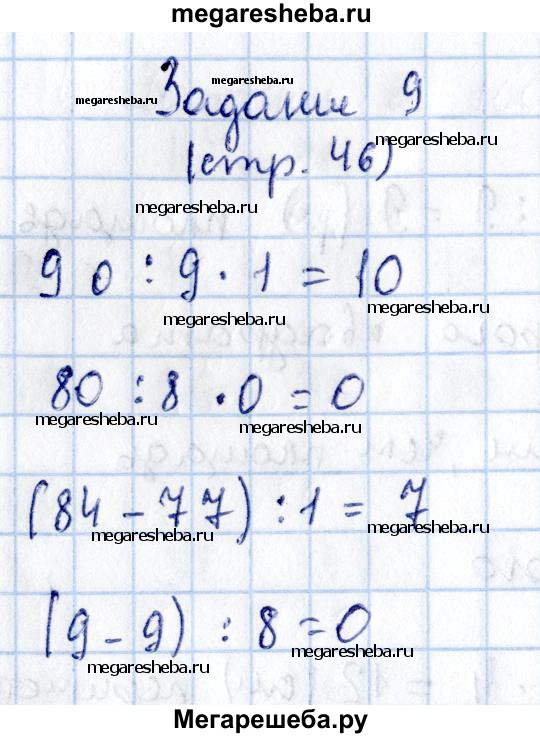 megaresheba.ru
megaresheba.ru
megaresheba.ru
Задание 9
megaresheba.ru
(стр. 46)
megaresheba.ru
90 : 9 · 1 = 10
megaresheba.ru
megaresheba.ru
80 : 8 · 0 = 0
megaresheba.ru
megaresheba.ru
(84 - 77) : 1 = 7
megaresheba.ru
megaresheba.ru
(9 - 9) : 8 = 0
megaresheba.ru
megaresheba.ru
Мегарешеба.ру